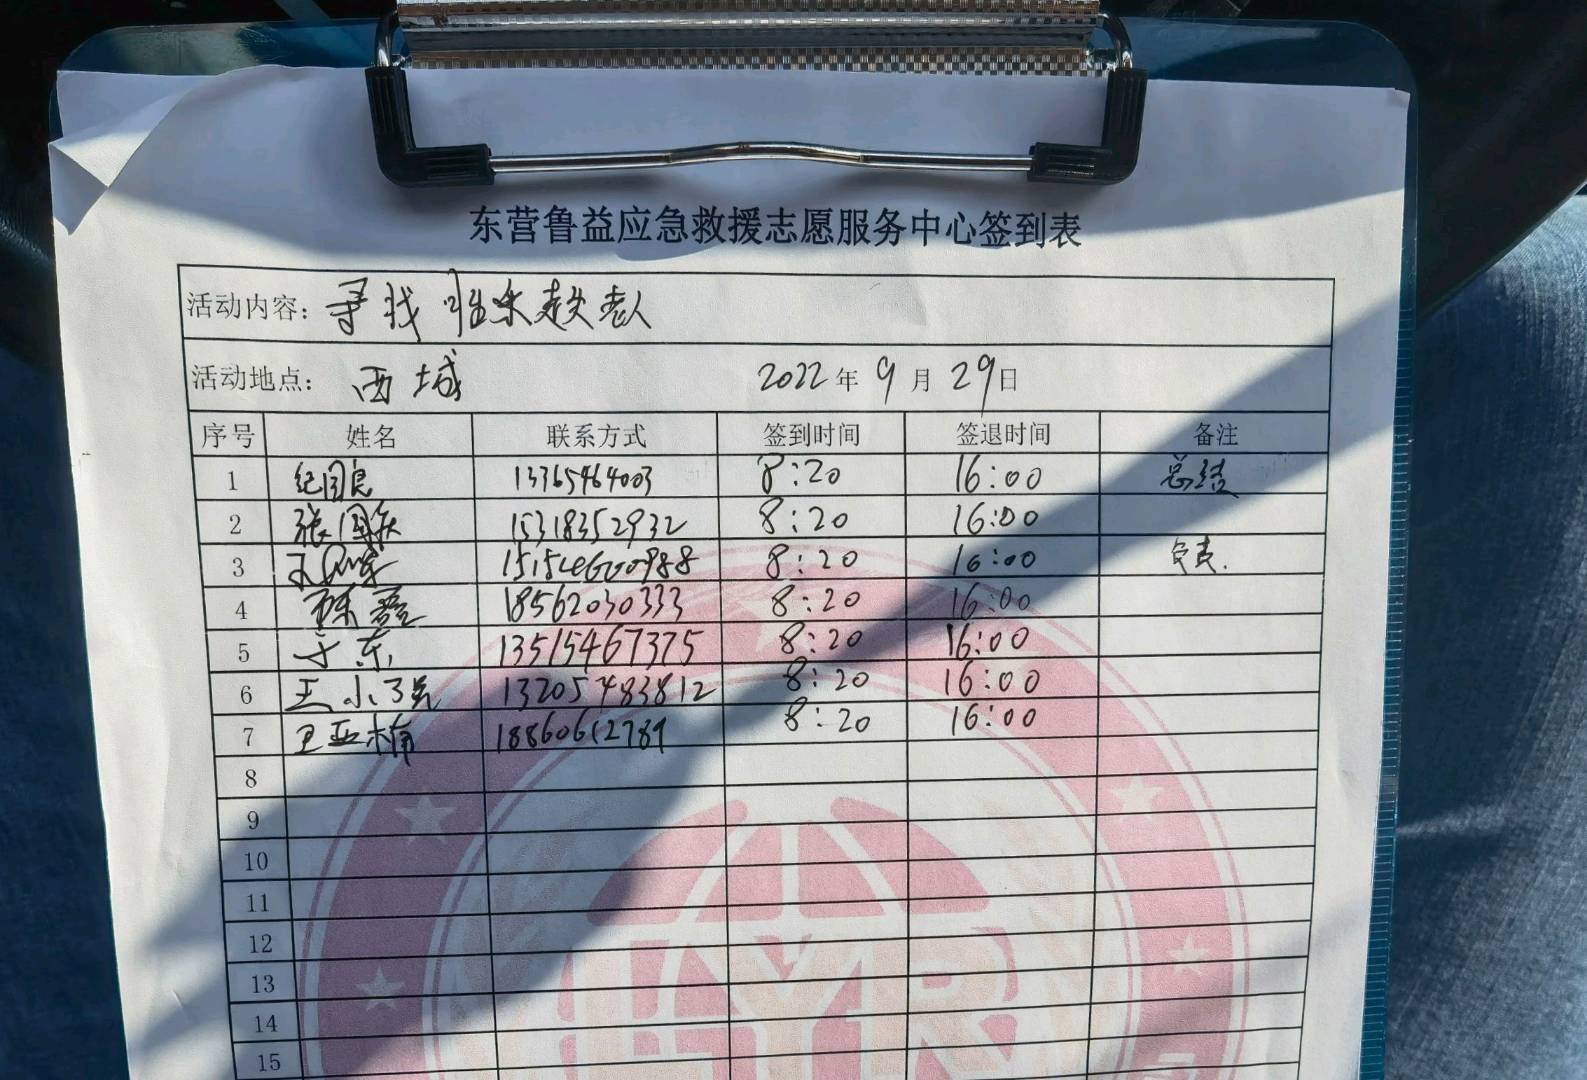 东营鲁益应急救援志愿服务中心签到表
活动内容: 寻找 走失老人
活动地点: 西城 2022年9月29日
序号 姓名 联系方式 签到时间 签退时间 备注
1 纪国良 13365464003 8:20 16:00 总结
2 张国 15318352932 8:20 16:00
3 8:20 16:00 负责.
4 18562030333 8:20 16:00
5 东 13515467375 8:20 16:00
6 王小 13205483812 8:20 16:00
7 王亚楠 18860612789 8:20 16:00
8
9
10
11
12
13
14
15